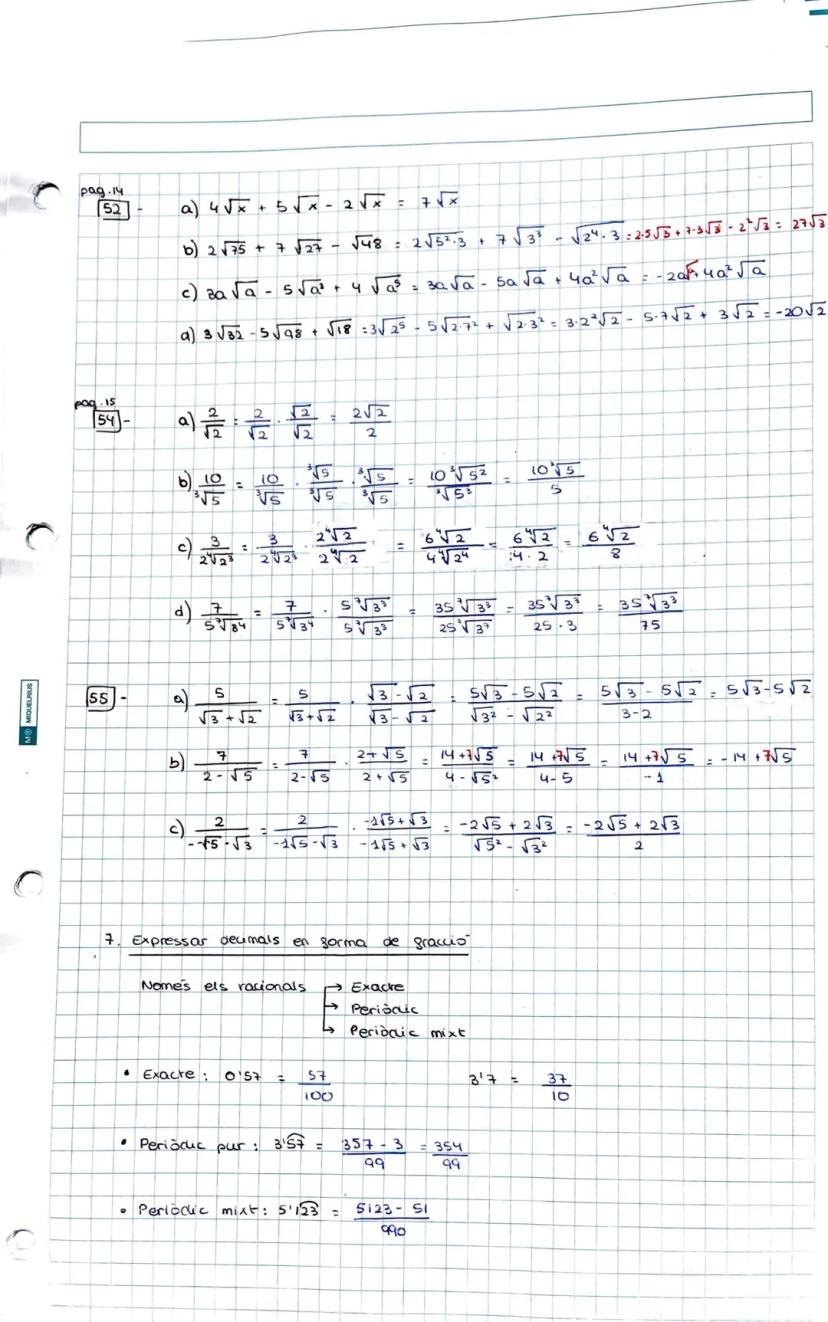 pag.14
52 - a) 4√x + 5√x - 2√x = 7√x
b) 2√75 + 7√27 - √48 = 2√5²·3 + 7√3³ - √2⁴·3 = 2·5√3 + 7·3√3 - 2²√3 = 27√3
c) 3a√a - 5√a³ + 4√a⁵ = 3a√a - 5a√a + 4a²√a = -2a√a + 4a²√a
d) 3√32 - 5√98 + √18 = 3√2⁵ - 5√2·7² + √2·3² = 3·2²√2 - 5·7√2 + 3√2 = -20√2
pag.15
54 - a) 2/√2 = 2/√2 · √2/√2 = 2√2/2
b) 10/³√5 = 10/³√5 · ³√5/³√5 · ³√5/³√5 = 10³√5²/³√5³ = 10³√5/5
c) 3/2⁴√2³ = 3/2⁴√2³ · 2⁴√2/2⁴√2 = 6⁴√2/4⁴√2⁴ = 6⁴√2/4·2 = 6⁴√2/8
d) 7/5⁷√3⁴ = 7/5⁷√3⁴ · 5⁷√3³/5⁷√3³ = 35⁷√3³/25⁷√3⁷ = 35⁷√3³/25·3 = 35⁷√3³/75
55 - a) 5/√3+√2 = 5/√3+√2 · √3-√2/√3-√2 = 5√3-5√2/√3²-√2² = 5√3-5√2/3-2 = 5√3-5√2
b) 7/2-√5 = 7/2-√5 · 2+√5/2+√5 = 14+7√5/4-√5² = 14+7√5/4-5 = 14+7√5/-1 = -14+7√5
c) 2/-√5-√3 = 2/-1√5-√3 · -1√5+√3/-1√5+√3 = -2√5+2√3/√5²-√3² = -2√5+2√3/2
7. Expressar decimals en forma de fracció
Només els racionals → Exacte
→ Periòdic
→ Periòdic mixt
• Exacte: 0'57 = 57/100 3'7 = 37/10
• Periòdic pur: 3'57 = 357-3/99 = 354/99
• Periòdic mixt: 5'123 = 5123-51/990
MIQUELRIUS